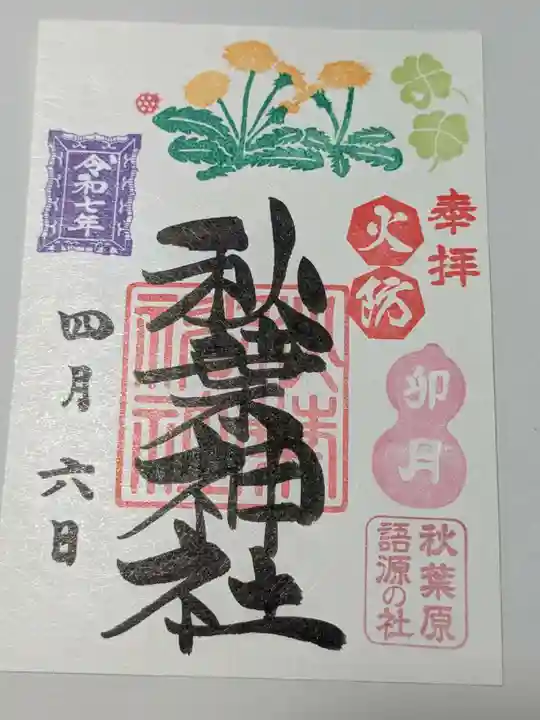 奉拝
火防
卯月
秋葉原
語源の社
秋葉神社
令和七年
四月六日